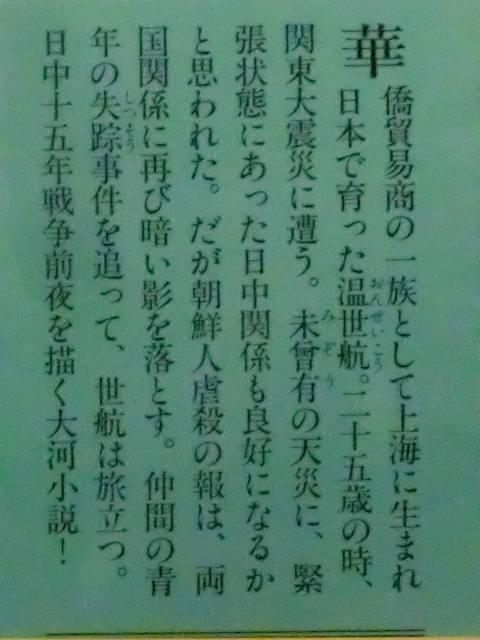 華僑貿易商の一族として上海に生まれ
日本で育った温世航。二十五歳の時、
関東大震災に遭う。未曾有の天災に、緊
張状態にあった日中関係も良好になるか
と思われた。だが朝鮮人虐殺の報は、両
国関係に再び暗い影を落とす。仲間の青
年の失踪事件を追って、世航は旅立つ。
日中十五年戦争前夜を描く大河小説！